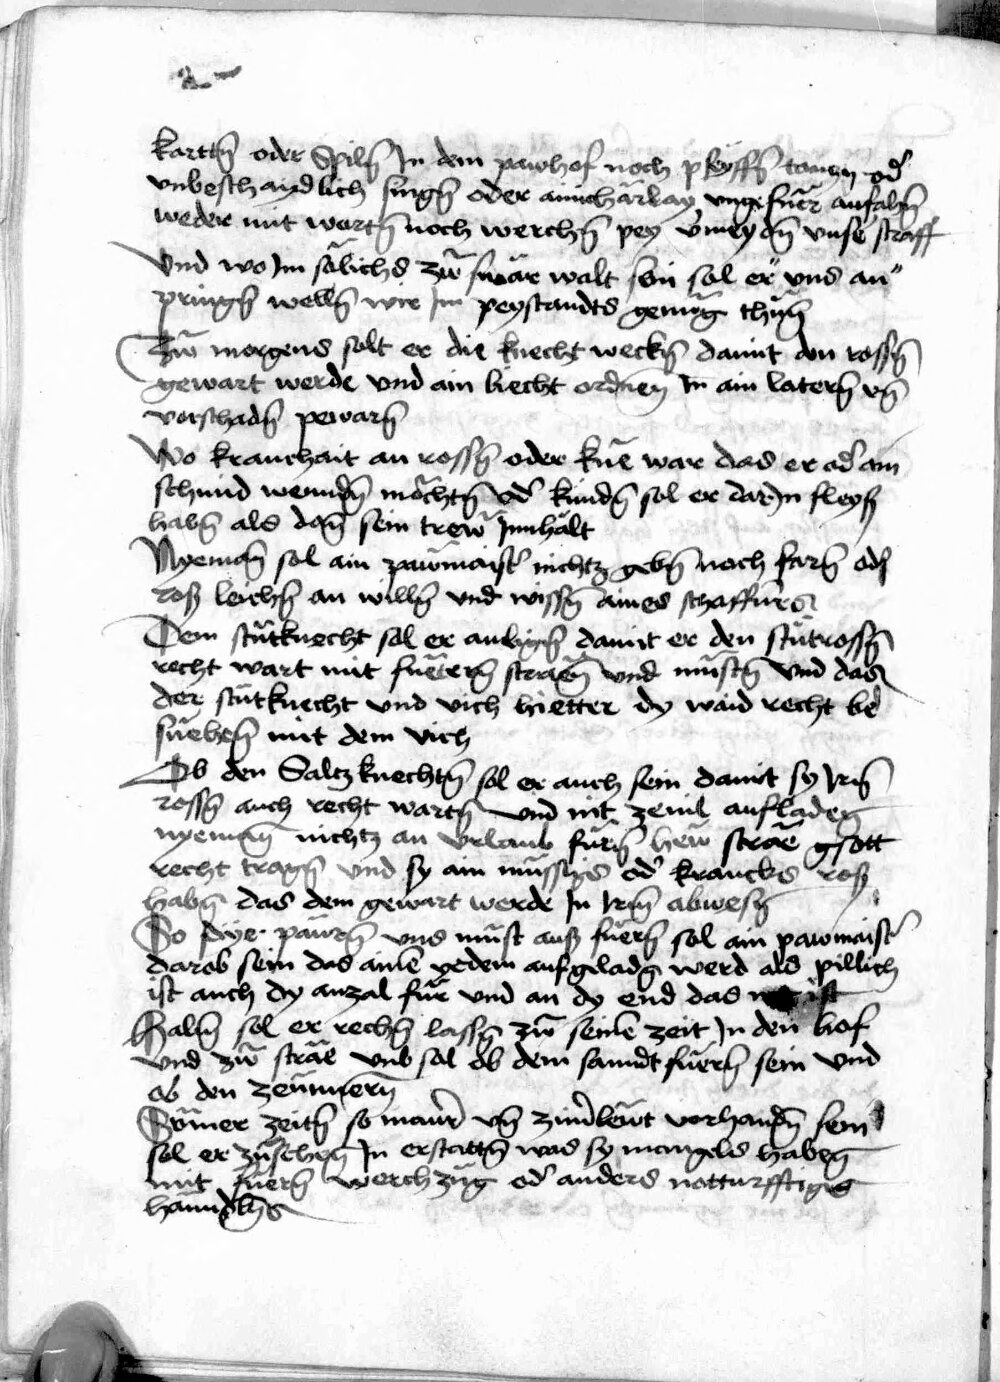 kartt̄n oder Spiln̄ In dem pawhof noch pfeyffn̄ tantzn od̓
vnbeschaydlich singn̄ oder ainichärlay vngefüer anfahn̄
weder mit wortn̄ noch werchn̄ pey v̓meydn̄ vnser straff
Vnd wo Im sölichs zw̄ swär walt sein sol er vns an
pringn̄ welln̄ wir Im peystandts genüg thün̄
Zw̄ morgens solt er die knecht weckn̄ damit den rossn̄
gewart werde vnd ain liecht ordnen̄ In ain latern̄ vn̄
vorschadn̄ pewarn̄
Wo kranchait an rossn̄ oder küe war das er od̓ ain
schmid wenndn̄ möchtn̄ od̓ kündn̄ sol er darIn fleyß
habn̄ als dan̄ sein trew Innhalt
Nyeman̄ sol ain pawmaist̓ nichtz gebn̄ noch farn̄ od̓
roß leichn̄ an willn̄ vnd wissn̄ aines schaffners
Dem stütknecht sol er anlign̄ damit er den stütrossn̄
recht wart mit füetern̄ sträen̄ vnd müstn̄ vnd das
der stütknecht vnd vich hietter dy waid recht be
süehen̄ mit dem vich
Ob den Saltzknechtn̄ sol er auch sein damit sy Irn̄
rossn̄ auch recht wartn̄ vnd nit zeuil aufladen̄
nyeman̄ nichtz an vrlaub füern̄ hew sträe gsott
recht tragn̄ vnd sy ain müssigs od̓ krancks roß
habn̄ das dem gewart werde In Irm̄ abwesn̄
So dye pawrn̄ vns müst auß füern̄ sol ain pawmaist̓
darob sein das aine yedem aufgeladn̄ werd als pillich
ist auch dy anzal für vnd an dy end das ist
Halm̄ sol er rechn̄ lassn̄ zw̄ seine zeit In den hof
vnd zw̄ sträe vnd sol ob dem sanndt füern̄ sein vnd
ob den zeünnern̄
Sümer zeitn̄ so maur̓ vn̄ zim̓lewt vorhandn̄ sein
sol er züsehen̄ In erstattn̄ was sy mangels haben̄
mit füern̄ werchzüg od̓ anders notturfftigs